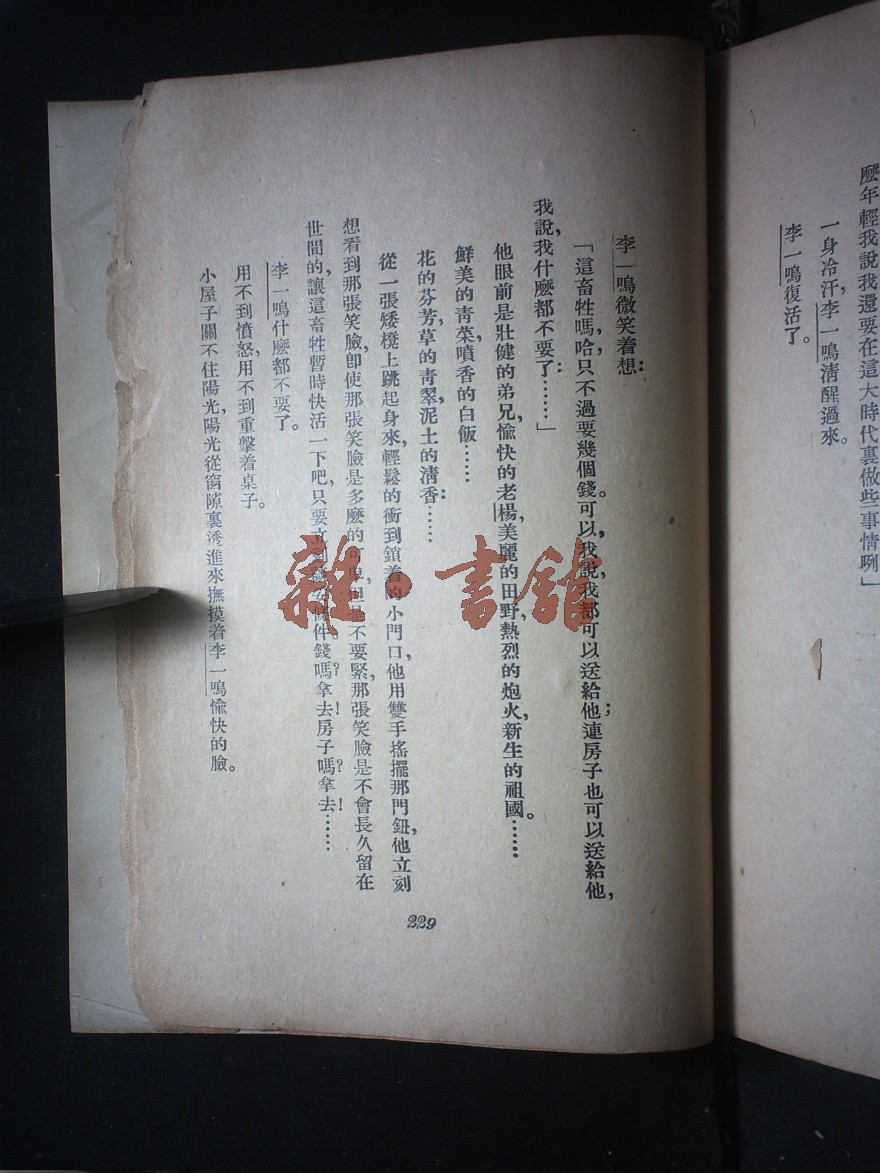 麽年輕我說我還要在這大時代裏做些事情咧」
一身冷汗，李一鳴清醒過來。
李一鳴復活了。
李一鳴微笑着想：
「這畜牲嗎，哈，只不過要幾個錢。可以，我說，我都可以送給他；連房子也可以送給他，
我說，我什麽都不要了……」
他眼前是壯健的弟兄，愉快的老楊，美麗的田野，熱烈的炮火，新生的祖國。……
鮮美的青菜，噴香的白飯……
花的芬芳，草的青翠，泥土的清香……
從一張矮櫈上跳起身來，輕鬆的衝到鎖着的小門口，他用雙手搖擺那門鈕，他立刻
想看到那張笑臉，卽使那張笑臉是多麽的可是不要緊，那張笑臉是不會長久留在
世間的，讓這畜牲暫時快活一下吧，只要條件。錢嗎？拿去！房子嗎？拿去！……
李一鳴什麽都不要了。
用不到憤怒，用不到重擊着桌子。
小屋子關不住陽光，陽光從窗隙裏透進來，撫摸着李一鳴愉快的臉。
229
雜·書館